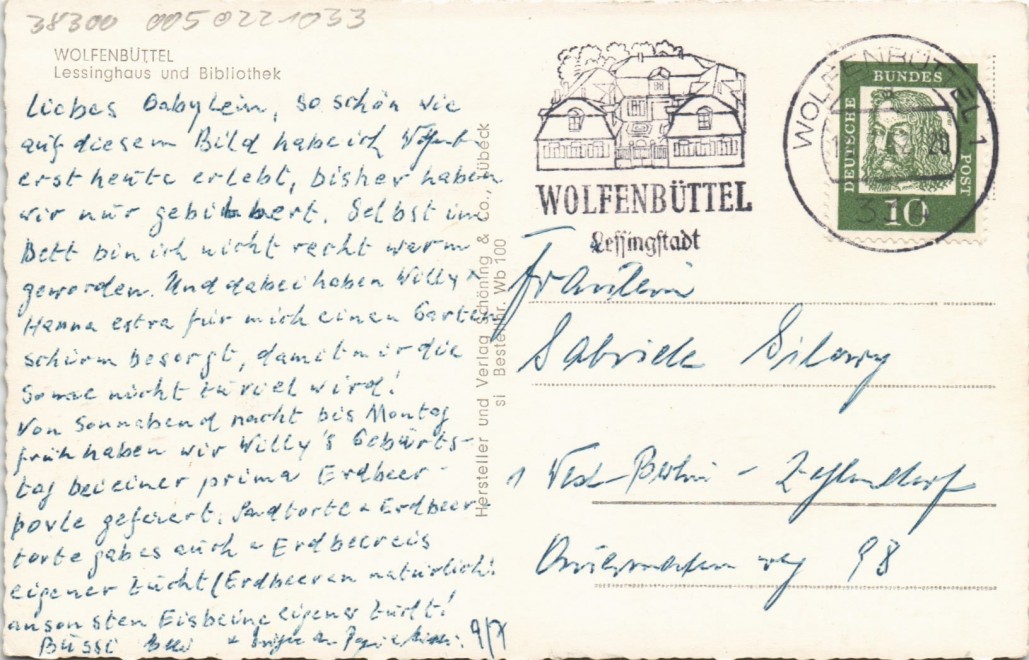 38300 005 0221033
WOLFENBÜTTEL
Lessinghaus und Bibliothek
Liebes Gabylein, so schön wie
auf diesem Bild habe ich
erst heute erlebt, bisher haben
wir nur gebibbert. Selbst im
Bett bin ich nicht recht warm
geworden. Und dabei haben Willy +
Hanna extra für mich einen Garten
schirm besorgt, damit mir die
Sonne nicht zuviel wird!
Von Sonnabend nacht bis Montag
früh haben wir Willy's Geburts-
tag bei einer prima Erdbeer-
bowle gefeiert. Sandtorte + Erdbeer
torte gab es auch + Erdbeereis
eigener Zucht (Erdbeeren natürlich!
ansonsten Eisbeine eigener Zucht!
Bussi
Hersteller und Verlag Schöning & Co., Lübeck
si Bestellnr. Wb 100
WOLFENBÜTTEL
Lessingstadt
WOLFENBÜTTEL 1
20
DEUTSCHE BUNDES POST
10
Fräulein
Gabriele
1 West-Berlin - Zehlendorf
98